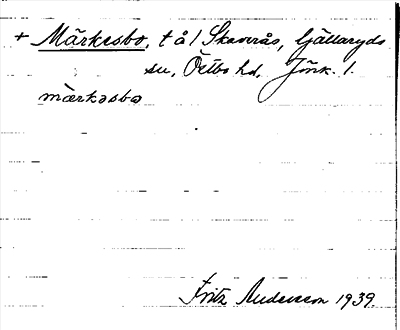 + Märkesbo, t å 1 Skaverås, Gällaryds
sn, Östbo hd, Jönk. l.
mä̀rkəsbo
Fritz Andersson 1939.